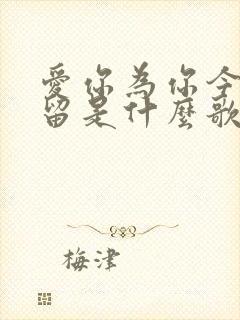 愛你為你今
留是什麼歌
梅津